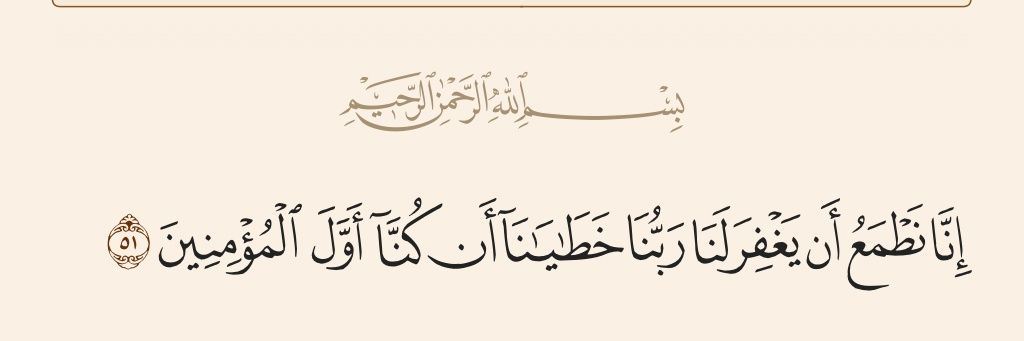 بِسْمِ ٱللَّهِ ٱلرَّحْمَٰنِ ٱلرَّحِيمِ
إِنَّا نَطْمَعُ أَن يَغْفِرَ لَنَا رَبُّنَا خَطَٰيَٰنَآ أَن كُنَّآ أَوَّلَ ٱلْمُؤْمِنِينَ ٥١